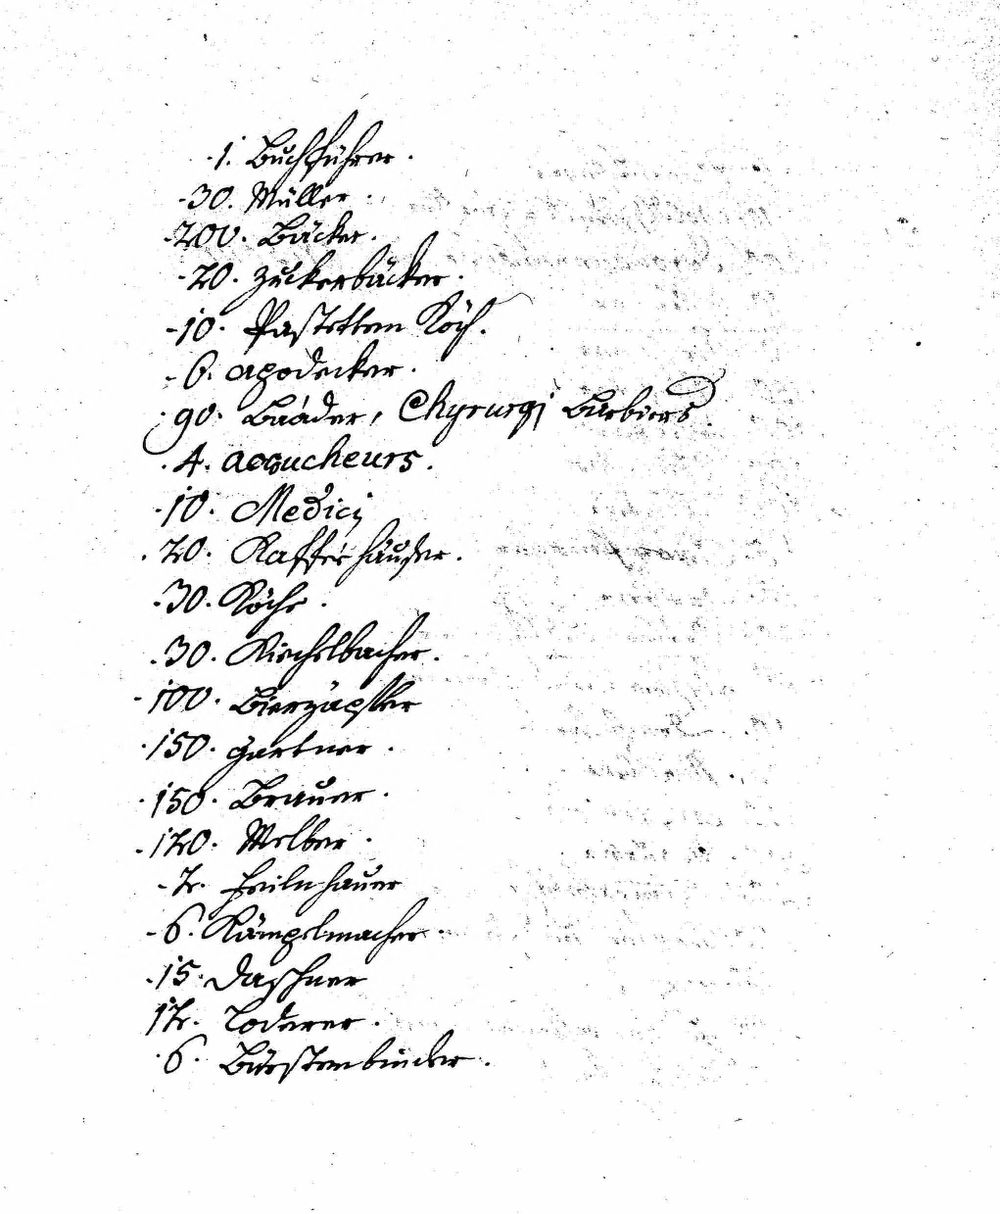 1. Buchführer.
30. Müller.
200. Bäcker.
20. Zuckerbäcker.
10. Pastetten Köch.
6. Apodecker.
90. Baader, Chyrurgi Barbiers.
4. accucheurs.
10. Medici
20. Kaffée häuser.
30. Köche.
30. Kiechelbacher.
100. Bierzäpfler
150. Gartner.
150. Brauer.
120. Melber.
2. Feilnhauer
6. Kämpelmacher.
15. Daschner
12. Loderer.
6. Bürstenbinder.